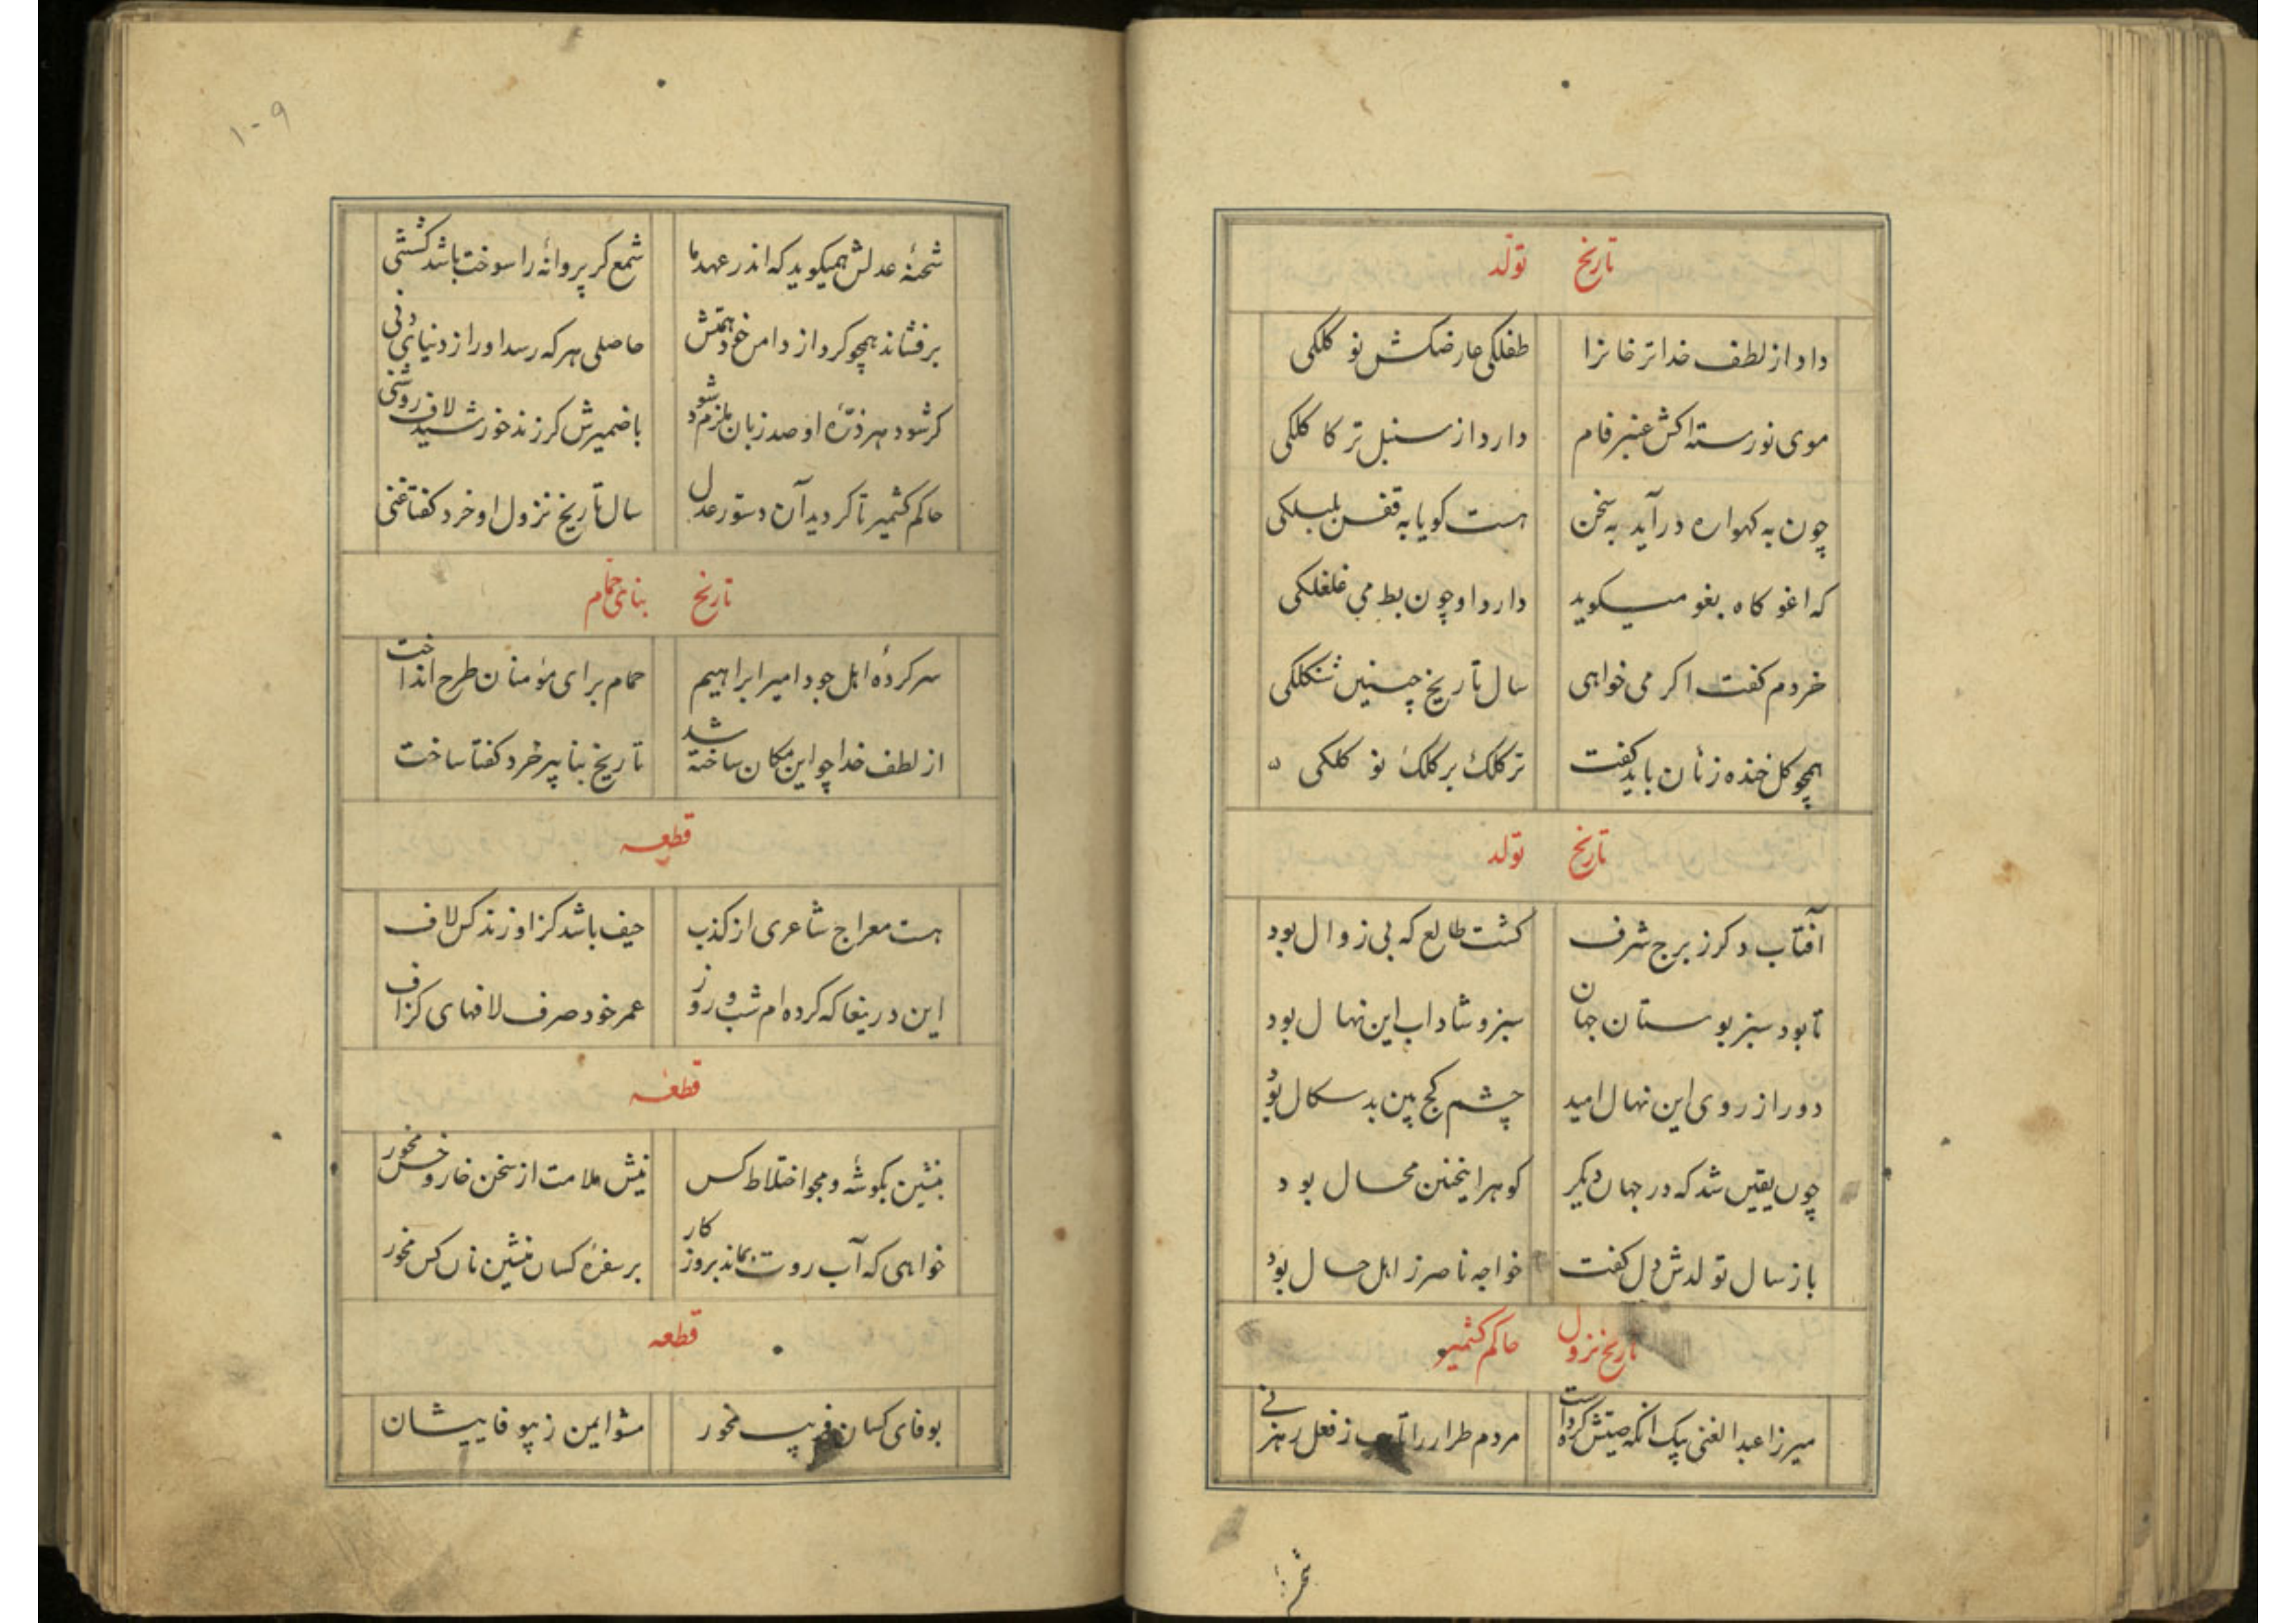 تاریخ تولد
داد از لطف خدا ترخانرا طفلکی عارضکش نو کلکی
موی نورسته اکش عنبر فام دارد از سنبل تر کاکلکی
چون به کهواره درآید به سخن هست کویا به قفس بلبلکی
که اغو کاه بغو میکوید دارد او چون بط می غلغلکی
خردم کفت اکر می خواهی سال تاریخ چنین شنکلکی
همچو کل خنده زنان باید کفت ترکلک برکلک نو کلکی
تاریخ تولد
آفتاب دکر ز برج شرف کشت طالع که بی زوال بود
تا بود سبز بوستان جهان سبز و شاداب این نهال بود
دور از روی این نهال امید چشم کج بین بد سکال بود
چون یقین شد که در جهان دیکر کوهر اینچنین محال بود
باز سال تولدش دل کفت خواجه ناصر ز اهل حال بود
تاریخ نزول حاکم کشمیر
میرزا عبد الغنی بیک آنکه صیتش کرده است مردم طرار را تایب ز فعل رهزنی
شحنهٔ
شحنهٔ عدلش همیکوید که اندر عهد ما شمع کر پروانه را سوخت باشد کشتنی
برفشاند همچو کرد از دامن خود همتش حاصلی هر که رسد او را از دنیای دنی
کر شود هر ذرّهٔ او صد زبان ملزم شود با ضمیرش کر زند خورشید لاف روشنی
حاکم کشمیر تا کردید آن دستور عدل سال تاریخ نزول او خرد کفتا غنی
تاریخ بنای حمام
سرکردهٔ اهل جود امیر ابراهیم حمام برای مؤمنان طرح انداخت
از لطف خدا چو این مکان ساخته شد تاریخ بنا پیر خرد کفتا ساخت
قطعه
هست معراج شاعری از کذب حیف باشد کز او زند کس لاف
این دریغا که کرده ام شب و روز عمر خود صرف لافهای کزاف
قطعه
بنشین بکوشهٔ و مجو اختلاط کس نیش ملامت از سخن خار و خس مخور
خواهی که آب روت بماند بروز کار بر سفرهٔ کسان منشین نان کس مخور
قطعه
بوفای کسان فریب مخور مشو ایمن ز بیوفاییشان
۱۰۹